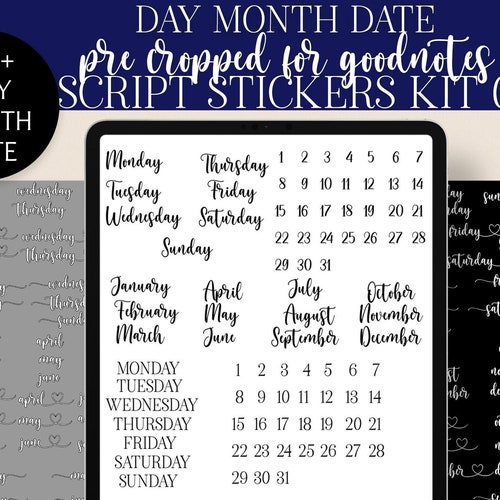 DAY MONTH DATE
pre cropped for goodnotes
SCRIPT STICKERS KIT
+
Y
TH
TE
Monday Thursday 1 2 3 4 5 6 7
Tuesday Friday 8 9 10 11 12 13 14
Wednesday Saturday 15 16 17 18 19 20 21
Sunday 22 23 24 25 26 27 28
29 30 31
January April July October
February May August November
March June September December
MONDAY 1 2 3 4 5 6 7
TUESDAY
WEDNESDAY 8 9 10 11 12 13 14
THURSDAY 15 16 17 18 19 20 21
FRIDAY 22 23 24 25 26 27 28
SATURDAY
SUNDAY 29 30 31
wednesday
thursday
wednesday
thursday
thursday
sunday
april
may
june
april
may
june
friday
saturday